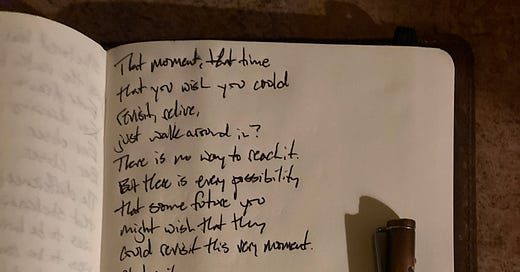 That moment, that time
that you wish you could
revisit, relive,
just walk around in?
There is no way to reach it.
But there is every possibility
that some future you
might wish that they
could revisit this very moment.